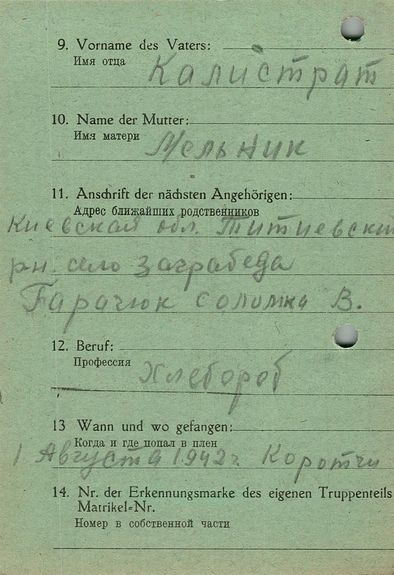 9. Vorname des Vaters:
Имя отца
Калистрат
10. Name der Mutter:
Имя матери
Мельник
11. Anschrift der nächsten Angehörigen:
Адрес ближайших родственников
Киевская обл. Титиевский
рн. село Заграбеда
Гарачюк Соломка В.
12. Beruf:
Профессия
Хлебороб
13 Wann und wo gefangen:
Когда и где попал в плен
1 Августа 1942 г. Коротчи
14. Nr. der Erkennungsmarke des eigenen Truppenteils
Matrikel=Nr.
Номер в собственной части